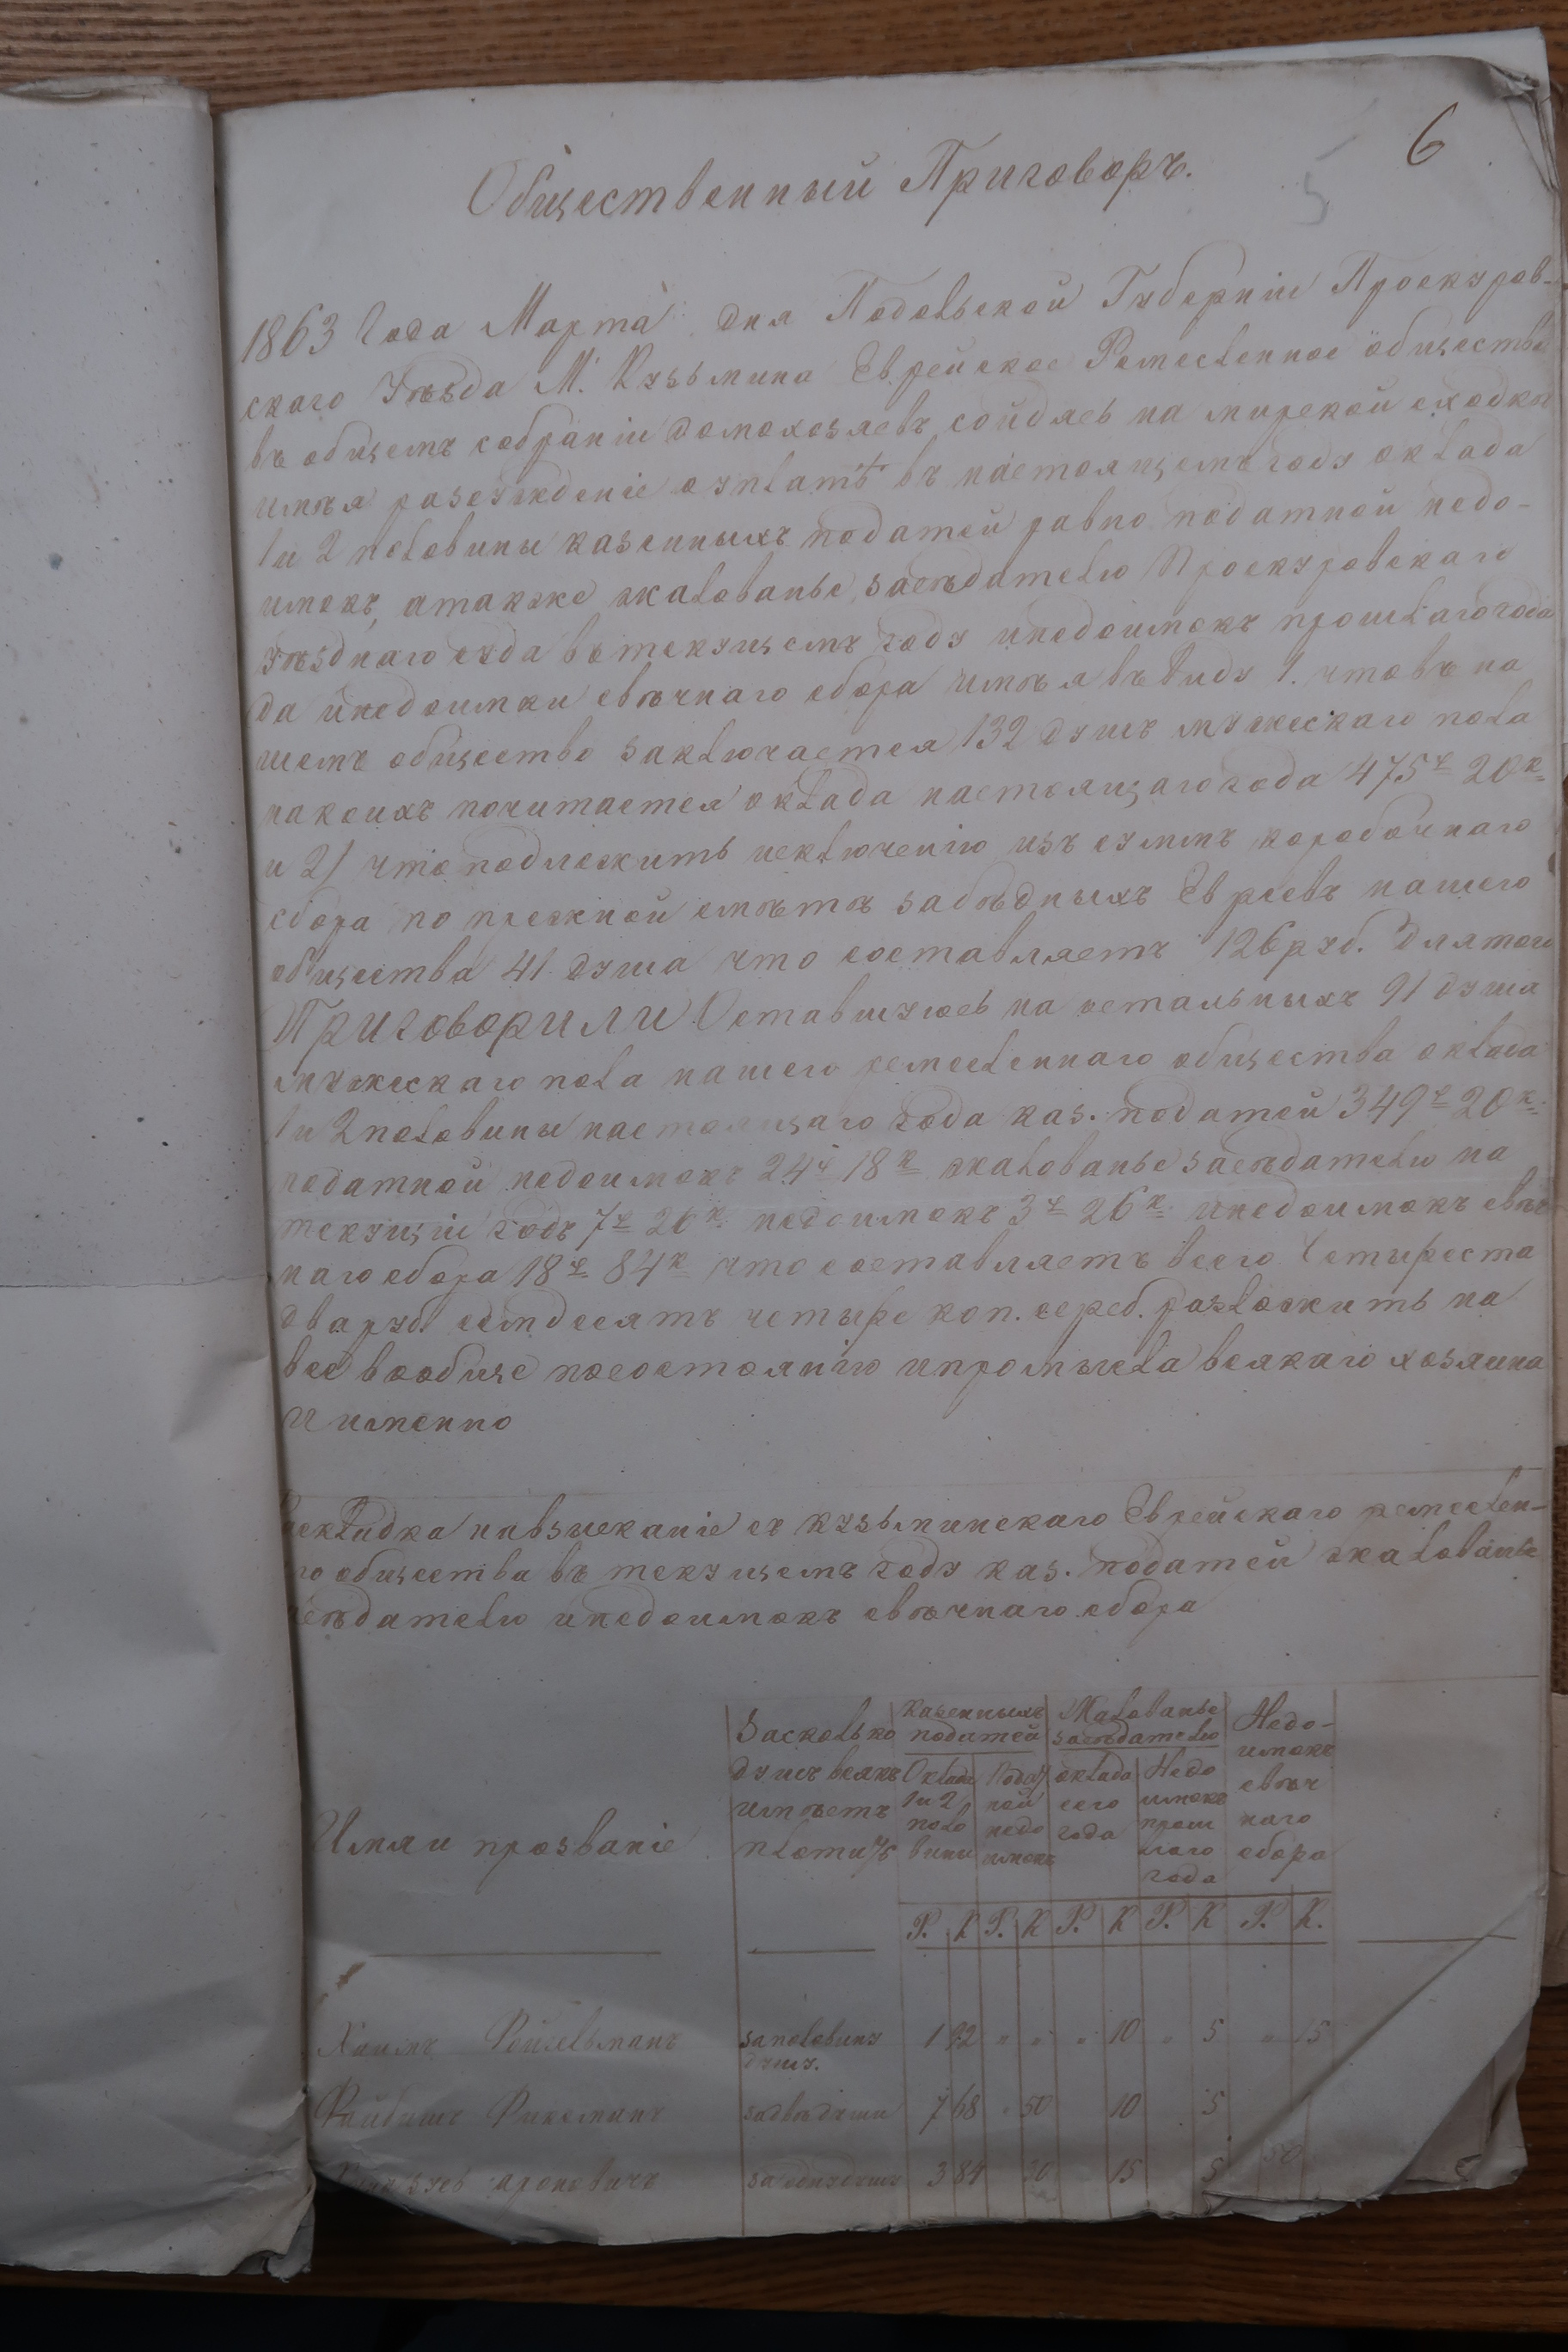 6
5
Общественный Приговоръ.
1863 Года Марта дня Подольской Губерніи Проскуров-
скаго Уѣзда М. Кузьмина Еврейское Ремесленное общество
въ общемъ собраніи домохозяевъ сойдясь на мирской сходкѣ
имѣя разсужденіе о уплатѣ въ настоящемъ году оклада
1 и 2 половины казенныхъ податей равно податной недо-
имокъ, атакже жалованье засѣдателю Проскуровскаго
уѣзднаго суда въ текущемъ году инедоимокъ прошлаго го
да инедоимки свѣчнаго сбора имѣя въ виду 1. что въ на
шемъ обществѣ заключается 132 душъ мужескаго пола
накоихъ почитается оклада настоящаго года 475 р 20 к
и 2) что подлежитъ исключенію изъ суммъ коробочнаго
сбора по прежней смѣтѣ забѣдныхъ Евреевъ нашего
общества 41 душа что составляетъ 126 руб. Для того
Приговорили Оставшуюсь на остальныхъ 91 душа
мужескаго пола нашего ремесленнаго общества оклада
1 и 2 половины настоящаго года каз. податей 349 р 20 к.
податной недоимокъ 24 р 18 к жалованье засѣдателю на
текущій годъ 7 р 26 к. недоимокъ 3 р 26 к. инедоимокъ свѣч
наго сбора 18 р 84 к что составляетъ всего Четыреста
два руб. семдесятъ четыре коп. сереб. разложить на
все вообще посостоянію ипромысла всякаго хозяина
Именно
Раскладка навзысканіе съ Кузьминскаго Еврейскаго ремеслен-
го общества въ текущемъ году каз. податей жалованье
засѣдателю инедоимокъ свѣчнаго сбора
Имя и прозваніе
Засколько душъ всякъ имѣетъ платить
Казенныхъ податей
Окладъ 1 и 2 поло вины
Подат ной недо имокъ
Жалованье засѣдателю
оклада сего года
Недо имокъ прош лаго года
Недо- имокъ свѣч наго сбора
Р. К Р. К Р. К Р. К Р. К.
Хаимъ Фойгельманъ заполовину душу. 1 92 " " " 10 " 5 " 15
Файбишъ Фиксманъ задвѣ души 7 68 " 50 10 5
ароновичъ заодну душу 3 84 30 15 5 50